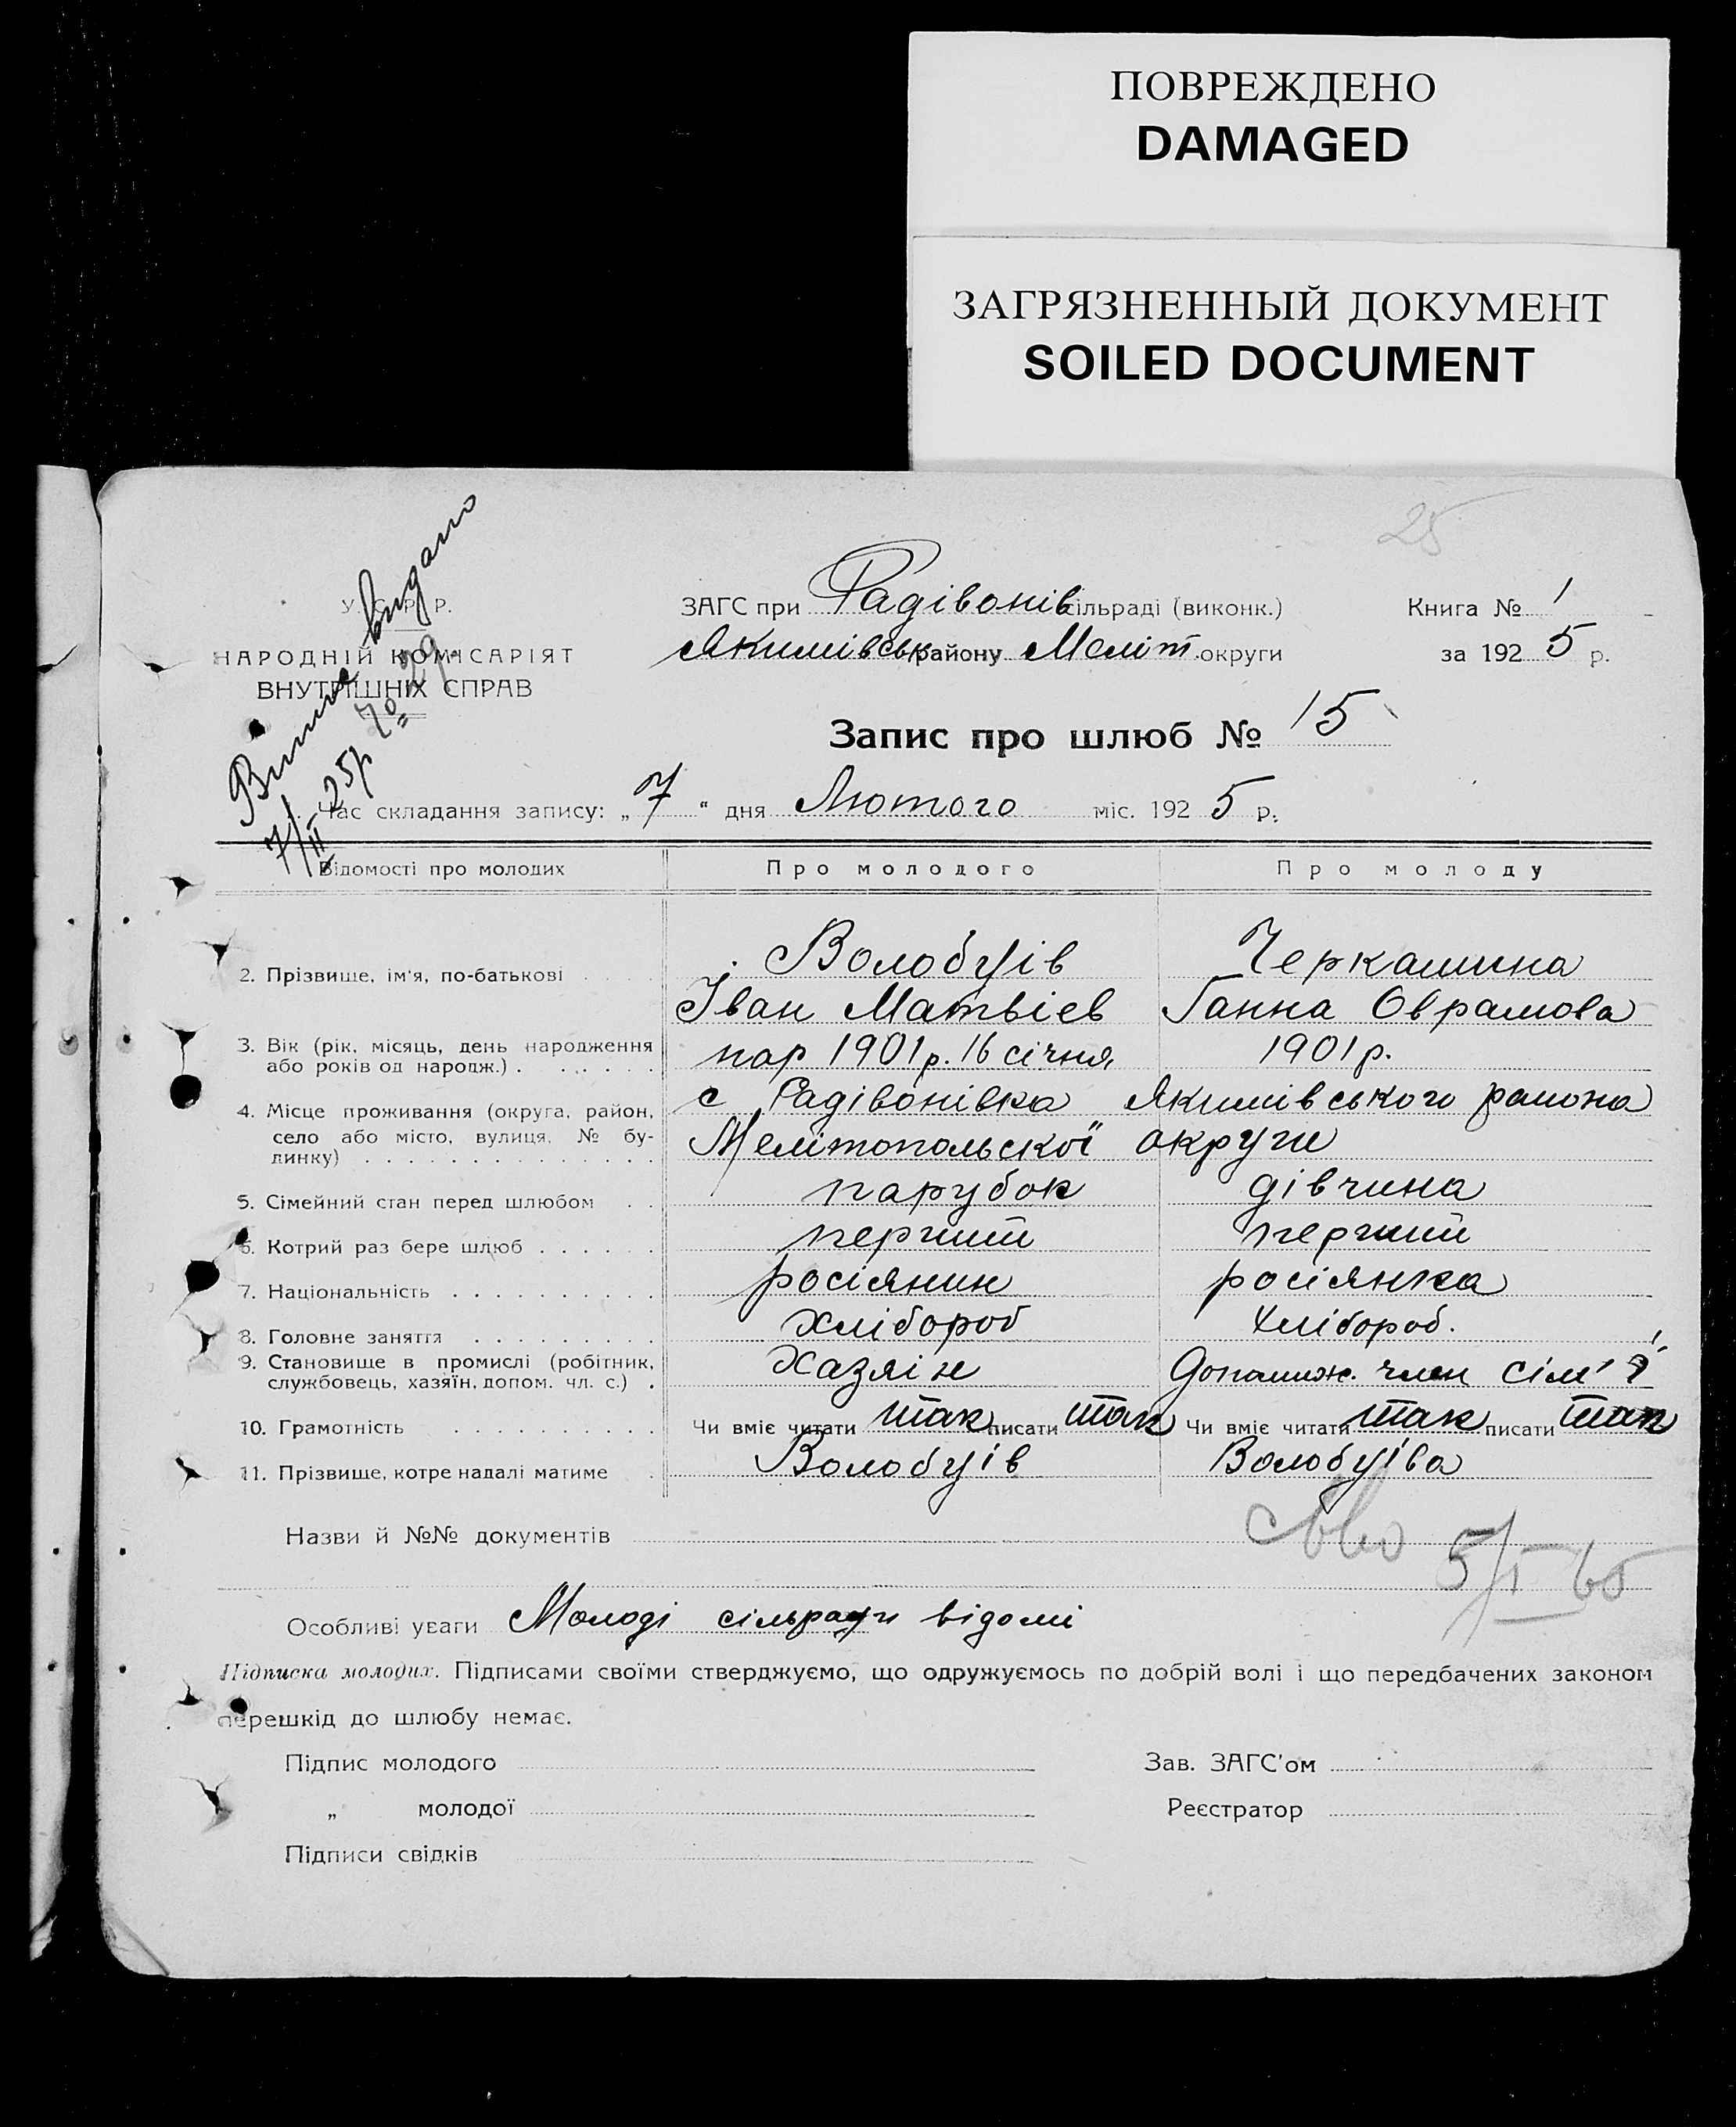 ПОВРЕЖДЕНО
DAMAGED
ЗАГРЯЗНЕННЫЙ ДОКУМЕНТ
SOILED DOCUMENT
25
Випис видано
7/II 25р № 29
У. С. Р. Р.
НАРОДНІЙ КОМІСАРІЯТ
ВНУТРІШНІХ СПРАВ
ЗАГС при Радівонів сільраді (виконк.)
Якимівськ району Меліт. округи
Книга № 1
за 1925 р.
Запис про шлюб № 15
Час складання запису: „7“ дня Лютого міс. 1925 р.
Відомості про молодих Про молодого Про молоду
2. Прізвище, ім'я, по-батькові Волобуїв Черкашина
Іван Матвієв Ганна Оврамова
3. Вік (рік, місяць, день народження або років од народж.) нар 1901р. 16 січня 1901р.
4. Місце проживання (округа, район, село або місто, вулиця, № будинку) с Радівонівка Якимівського района
Мелітопольскої округи
5. Сімейний стан перед шлюбом парубок дівчина
6. Котрий раз бере шлюб перший перший
7. Національність росіянин росіянка
8. Головне заняття хлібороб хлібороб.
9. Становище в промислі (робітник, службовець, хазяїн, допом. чл. с.) Хазяін допомиж. член сім'ї
10. Грамотність Чи вміє читати так писати так Чи вміє читати так писати так
11. Прізвище, котре надалі матиме Волобуїв Волобуїва
Назви й №№ документів
5/I 65
Особливі уваги Молоді сільради відомі
Підписка молодих. Підписами своїми стверджуємо, що одружуємось по добрій волі і що передбачених законом
перешкід до шлюбу немає.
Підпис молодого Зав. ЗАГС'ом
„ молодої Реєстратор
Підписи свідків